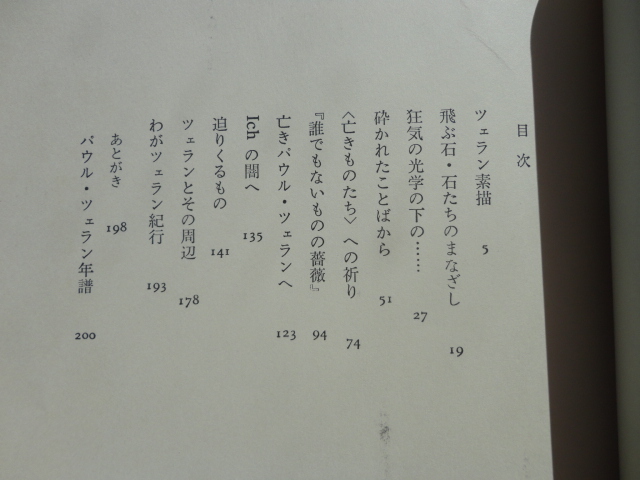 目次
ツェラン素描 5
飛ぶ石・石たちのまなざし 19
狂気の光学の下の…… 27
砕かれたことばから 51
〈亡きものたち〉への祈り 74
『誰でもないものの薔薇』 94
亡きパウル・ツェランへ 123
Ichの闇へ 135
迫りくるもの 141
ツェランとその周辺 178
わがツェラン紀行 193
あとがき 198
パウル・ツェラン年譜 200